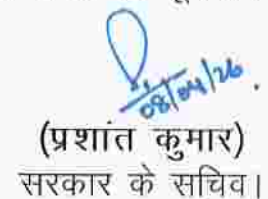 08/04/26.
(प्रशांत कुमार)
सरकार के सचिव।